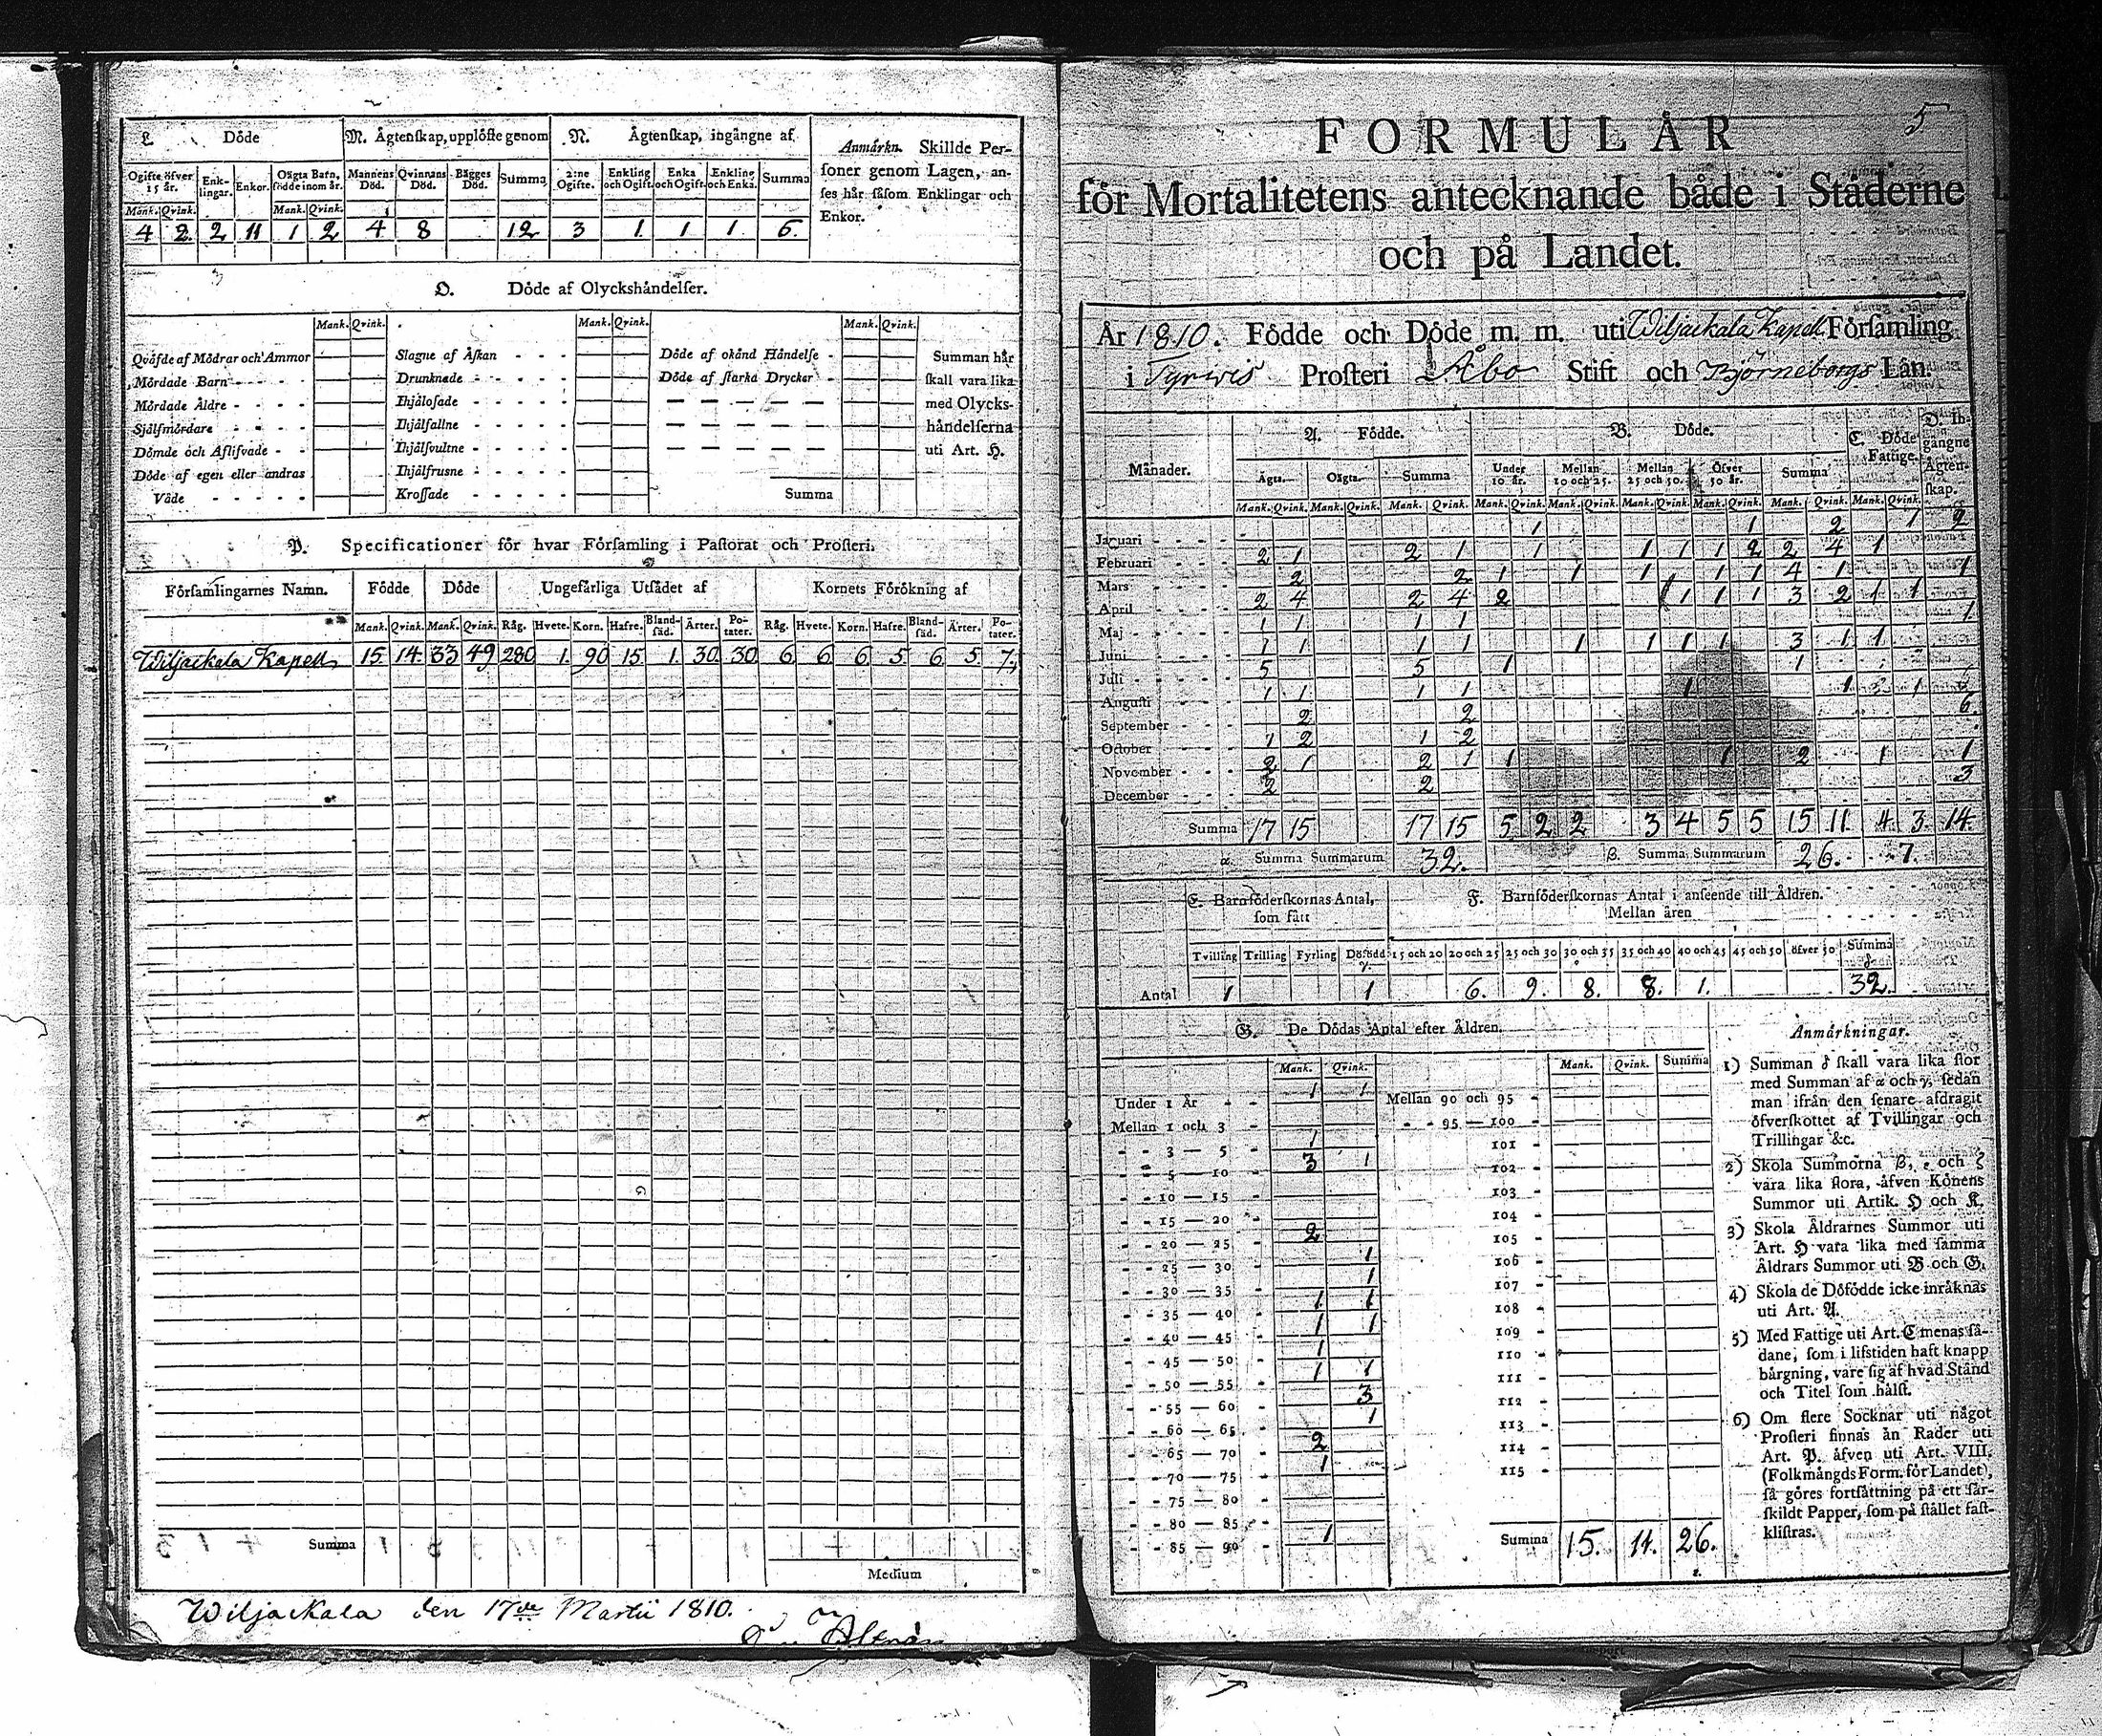 L. Döde
M. Ägtenskap, upplöste genom
N. Ägtenskap, ingångne af
Anmärkn. Skillde Per-
soner genom Lagen, an-
ses här såsom Enklingar och
Enkor.
Ogifte öfver 15 år. Enk- lingar. Enkor. Oägta Barn, födde inom år. Mannens Död. Qvinnans Död. Bägges Död. Summa 2:ne Ogifte. Enkling och Ogift. Enka och Ogift. Enkling och Enka. Summa
Mank. Qvink. Mank. Qvink.
4 2 2 11 1 2 4 8 12 3 1 1 1 6.
O. Döde af Olyckshändelser.
Mank. Qvink. Mank. Qvink. Mank. Qvink.
Qväfde af Mödrar och Ammor Slagne af Åskan - - - Döde af okänd Händelse - Summan här
Mördade Barn - - - - Drunknade - - - - Döde af starka Drycker - skall vara lika
Mördade Äldre - - - - Ihjälosade - - - - med Olycks-
Sjålfmördare - - - - Ihjälfallne - - - - händelserna
Dömde och Aflifvade - - Ihjälsvultne - - - - uti Art. H.
Döde af egen eller andras Ihjälfrusne - - - -
Våde - - - - - Krossade - - - - - Summa
P. Specificationer för hvar Församling i Pastorat och Prosteri.
Församlingarnes Namn. Födde Döde Ungefärliga Utsädet af Kornets Förökning af
Mank. Qvink. Mank. Qvink. Råg. Hvete. Korn. Hafre. Bland- säd. Ärter. Po- tater. Råg. Hvete. Korn. Hafre. Bland- säd. Ärter. Po- tater.
Wiljackala Kapell 15 14. 33 49 280 1. 90 15 1. 30 30 6 6 6 5 6 5 7.
Summa
Medium
Wiljackala den 17de Martii 1810.
5
FORMULÄR
för Mortalitetens antecknande både i Städerne
och på Landet.
År 1810. Födde och Döde m. m. uti Wiljackala Kapell Församling
i Tyrvis Prosteri Åbo Stift och Björneborgs Län.
Månader. A. Födde. B. Döde. C. Döde Fattige. D. In- gångne Ägten- skap.
Ägta. Oägta. Summa Under 10 år. Mellan 10 och 25. Mellan 25 och 50. Öfver 50 år. Summa
Mank. Qvink. Mank. Qvink. Mank. Qvink. Mank. Qvink. Mank. Qvink. Mank. Qvink. Mank. Qvink. Mank. Qvink. Mank. Qvink.
Januari - - - - 1 1 2 1 2
Februari - - - 2 1 2 1 1 1 1 1 2 2 4 1
Mars - - - - 2 2 1 1 1 1 1 4 1 1
April - - - - 2 4 2 4 2 1 1 1 3 2 1 1
Maj - - - - 1 1 1 1 1.
Juni - - - - 1 1 1 1 1 1 1 1 3 1 1
Juli - - - - 5 5 1 1
Augusti - - - 1 1 1 1 1 1 1
September - - - 2 2 6
October - - - 1 2 1 2
November - - - 2 1 2 1 1 1 2 1 1
December - - - 2 2 3
Summa 17 15 17 15 5 2 2 3 4 5 5 15 11. 4. 3. 14.
α. Summa Summarum 32. β. Summa Summarum 26. 7.
E. Barnföderskornas Antal, som fått
F. Barnföderskornas Antal i anseende till Åldren.
Mellan åren
Tvilling Trilling Fyrling Dödfödd γ. 15 och 20 20 och 25 25 och 30 30 och 35 35 och 40 40 och 45 45 och 50 öfver 50 Summa δ
Antal 1 1 6. 9. 8. 8. 1. 32.
G. De Dödas Antal efter Åldren.
Mank. Qvink. Mank. Qvink. Summa
Under 1 År - - 1 1 Mellan 90 och 95 -
Mellan 1 och 3 - - - 95 — 100 -
- - 3 — 5 - 1 101 -
- - 5 — 10 - 3 1 102 -
- - 10 — 15 - 103 -
- - 15 — 20 - 104 -
- - 20 — 25 - 2 105 -
- - 25 — 30 - 1 106 -
- - 30 — 35 - 1 107 -
- - 35 — 40 - 1 1 108 -
- - 40 — 45 - 1 1 109 -
- - 45 — 50 - 1 110 -
- - 50 — 55 - 1 1 111 -
- - 55 — 60 - 3 112 -
- - 60 — 65 - 1 113 -
- - 65 — 70 - 2 114 -
- - 70 — 75 - 1 115 -
- - 75 — 80 -
- - 80 — 85 -
- - 85 — 90 - 1 Summa 15. 11. 26.
Anmärkningar.
1) Summan δ skall vara lika stor
med Summan af α och γ, sedan
man ifrån den senare afdragit
öfverskottet af Tvillingar och
Trillingar &c.
2) Skola Summorna β, ε och ζ
vara lika stora, äfven Könens
Summor uti Artik. H och K.
3) Skola Äldrarnes Summor uti
Art. H vara lika med samma
Äldrars Summor uti B och G.
4) Skola de Döfödde icke inräknas
uti Art. A.
5) Med Fattige uti Art. C menas så-
dane, som i lifstiden haft knapp
bärgning, vare sig af hvad Stånd
och Titel som hälst.
6) Om flere Socknar uti något
Prosteri finnas än Rader uti
Art. P. äfven uti Art. VIII.
(Folkmängds Form. för Landet),
så göres fortsättning på ett sär-
skildt Papper, som på stället fast-
klistras.